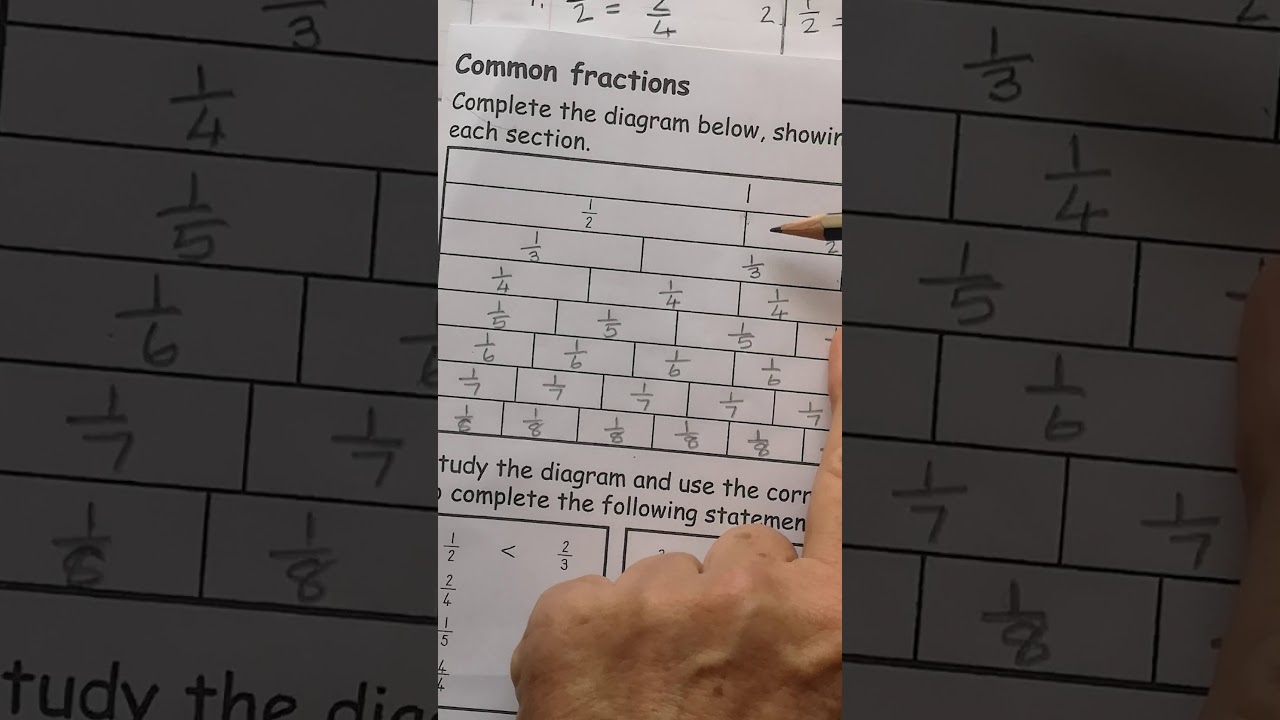 1. 1/2 = 2/4 2. 1/2 =
Common fractions
Complete the diagram below, showin
each section.
1
1/2 2
1/3 1/3
1/4 1/4 1/4
1/5 1/5 1/5
1/6 1/6 1/6 1/6
1/7 1/7 1/7 1/7 1/7
1/8 1/8 1/8 1/8 1/8
tudy the diagram and use the corr
o complete the following statemen
1/2 < 2/3
2/4
1/5
4/4